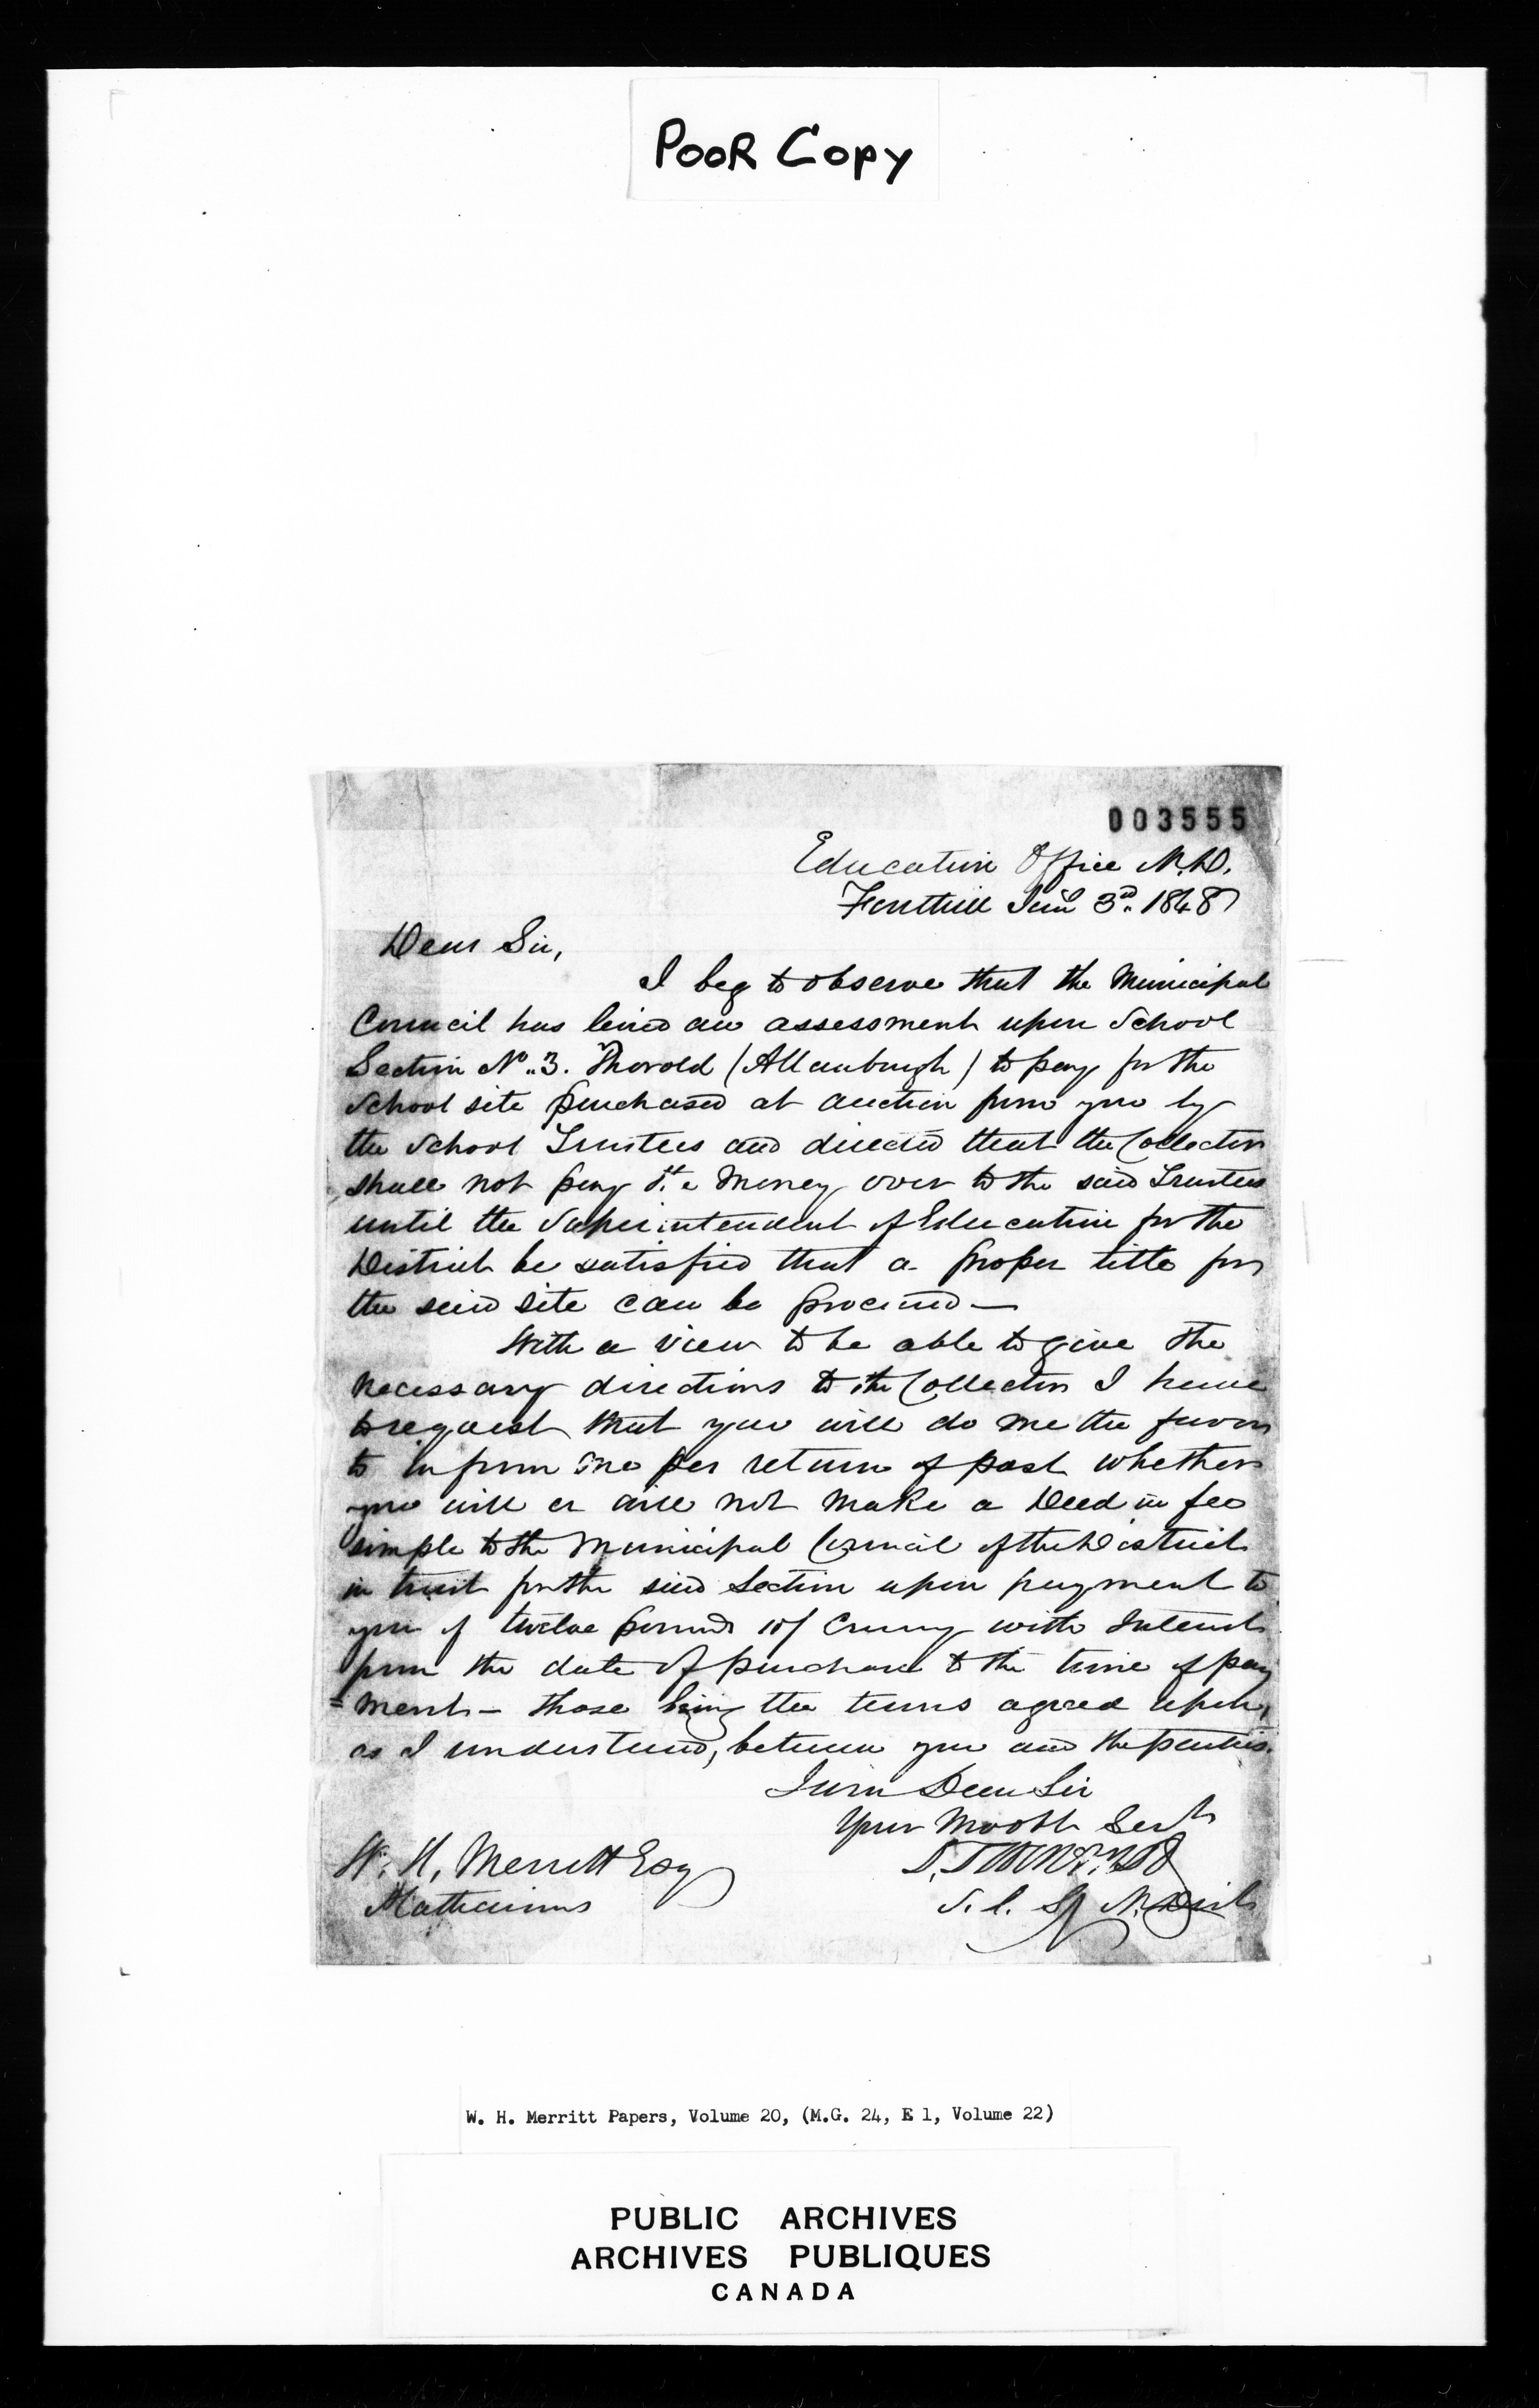 Poor Copy
003555
Education Office N.D.
Fonthill Jany 3rd. 1848
Dear Sir,
I beg to observe that the Municipal
Council has levied an assessment upon School
Section No. 3. Thorold (Allanburgh) to pay for the
School site purchased at auction from you by
the School Trustees and directed that the Collector
shall not pay the money over to the said Trustees
until the Superintendent of Education for the
District be satisfied that a proper title for
the said site can be procured—
With a view to be able to give the
necessary directions to the Collector I have
to request that you will do me the favor
to inform me per return of post whether
you will or will not make a Deed in fee
simple to the Municipal Council of the District
in trust for the said Section upon payment to
you of twelve pounds 10/ Curcy with Interest
from the date of purchase to the time of pay
=ment— those being the terms agreed upon,
as I understand, between you and the parties.
I am Dear Sir
Your Most Obt Servt
W. H. Merritt Esq
St Catharines
S. C. S. N. Dist
W. H. Merritt Papers, Volume 20, (M.G. 24, E 1, Volume 22)
PUBLIC ARCHIVES
ARCHIVES PUBLIQUES
CANADA